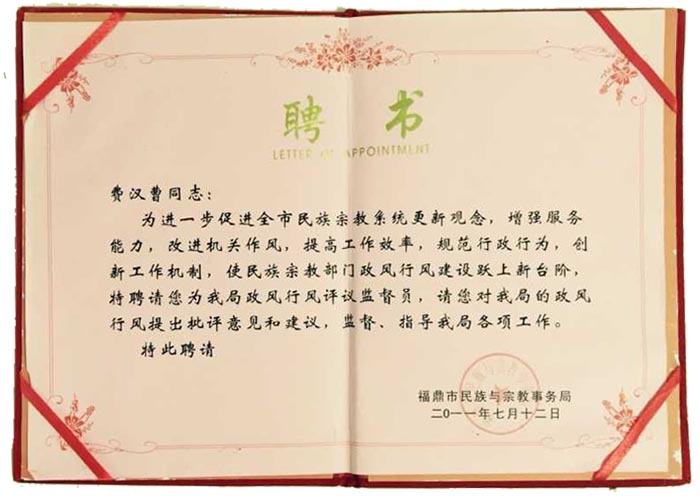 聘书
LETTER OF APPOINTMENT
费汉曹同志：
为进一步促进全市民族宗教系统更新观念，增强服务
能力，改进机关作风，提高工作效率，规范行政行为，创
新工作机制，使民族宗教部门政风行风建设跃上新台阶，
特聘请您为我局政风行风评议监督员，请您对我局的政风
行风提出批评意见和建议，监督、指导我局各项工作。
特此聘请
福鼎市民族与宗教事务局
二0一一年七月十二日